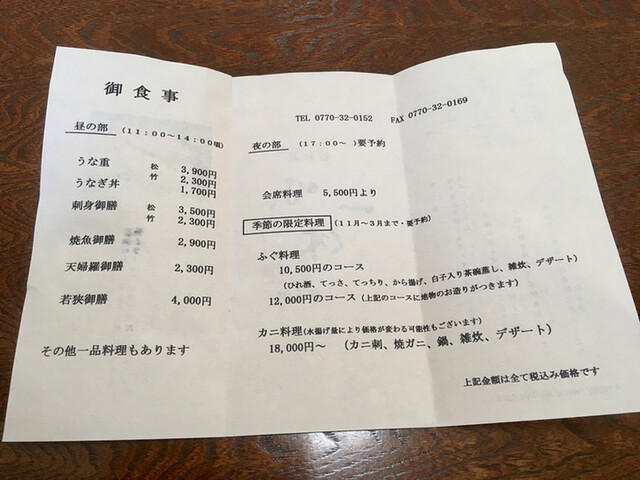 御食事
昼の部 (11:00~14:00頃)
うな重 松 3,900円
竹 2,300円
うなぎ丼 1,700円
刺身御膳 松 3,500円
竹 2,300円
焼魚御膳 2,900円
天婦羅御膳 2,300円
若狭御膳 4,000円
その他一品料理もあります
TEL 0770-32-0152 FAX 0770-32-0169
夜の部 (17:00~ )要予約
会席料理 5,500円より
季節の限定料理 (11月~3月まで・要予約)
ふぐ料理
10,500円のコース
(ひれ酒、てっさ、てっちり、から揚げ、白子入り茶碗蒸し、雑炊、デザート)
12,000円のコース (上記のコースに地物のお造りがつきます)
カニ料理(水揚げ量により価格が変わる可能性もございます)
18,000円~ (カニ刺、焼ガニ、鍋、雑炊、デザート)
上記金額は全て税込み価格です